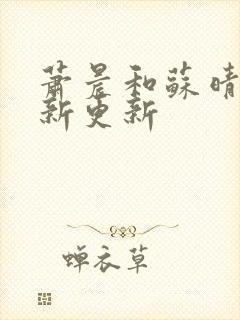 萧晨和蘇晴
新更新
蝉衣草